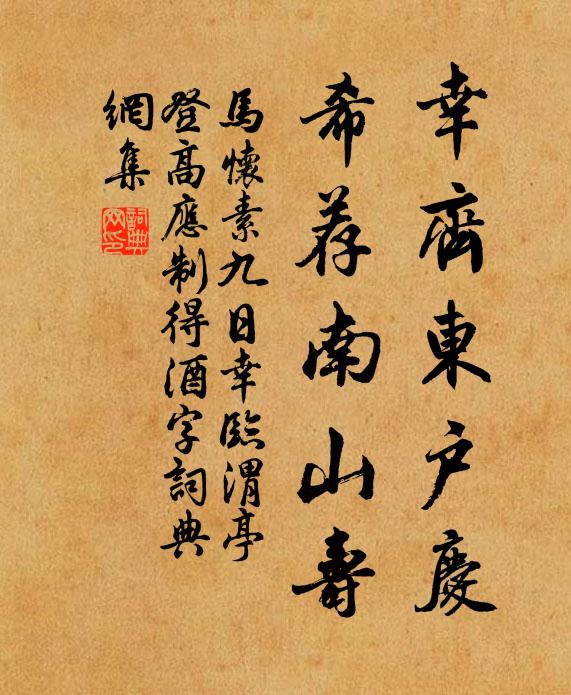 幸齊東戶慶
希荐南山壽
馬懷素九日幸臨渭亭
登高應制得酒字詞典
網集
詞典網印